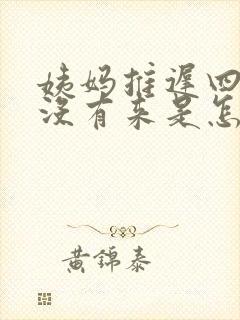 姨妈推迟四
没有来是怎
黄锦泰